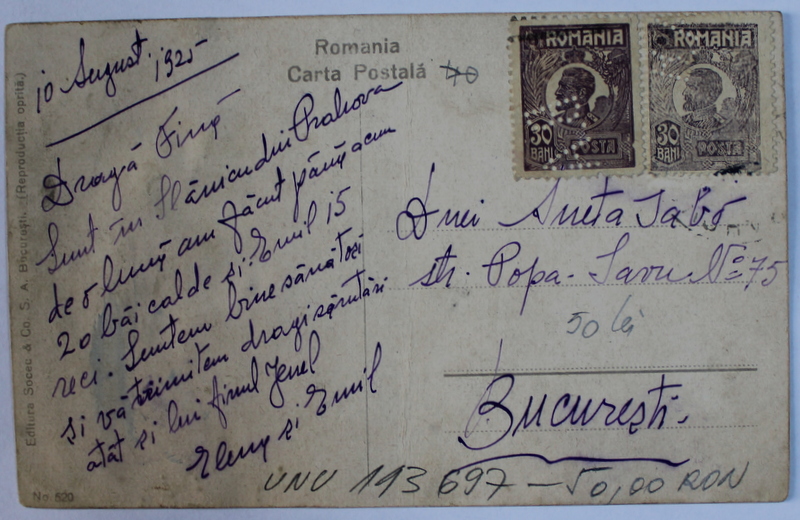 10 August 1925
Dragă Fină
Sunt în Slănicu din Prahova
de o lună am făcut până acum
20 băi calde și Emil 15
reci. Suntem bine sănătoși
și vă trimitem dragi sărutări
atât și lui finul Jenel
Elena și Emil
Romania
Carta Postală
40
ROMANIA
30 BANI
POSTA
ROMANIA
30 BANI
POSTA
Dnei Aneta Sabo
str. Popa-Savu No 75
50 lei
București.
UNU 193 697 – 50,00 RON
Editura Socec & Co. S. A., București. (Reproducția oprită.)
No 520